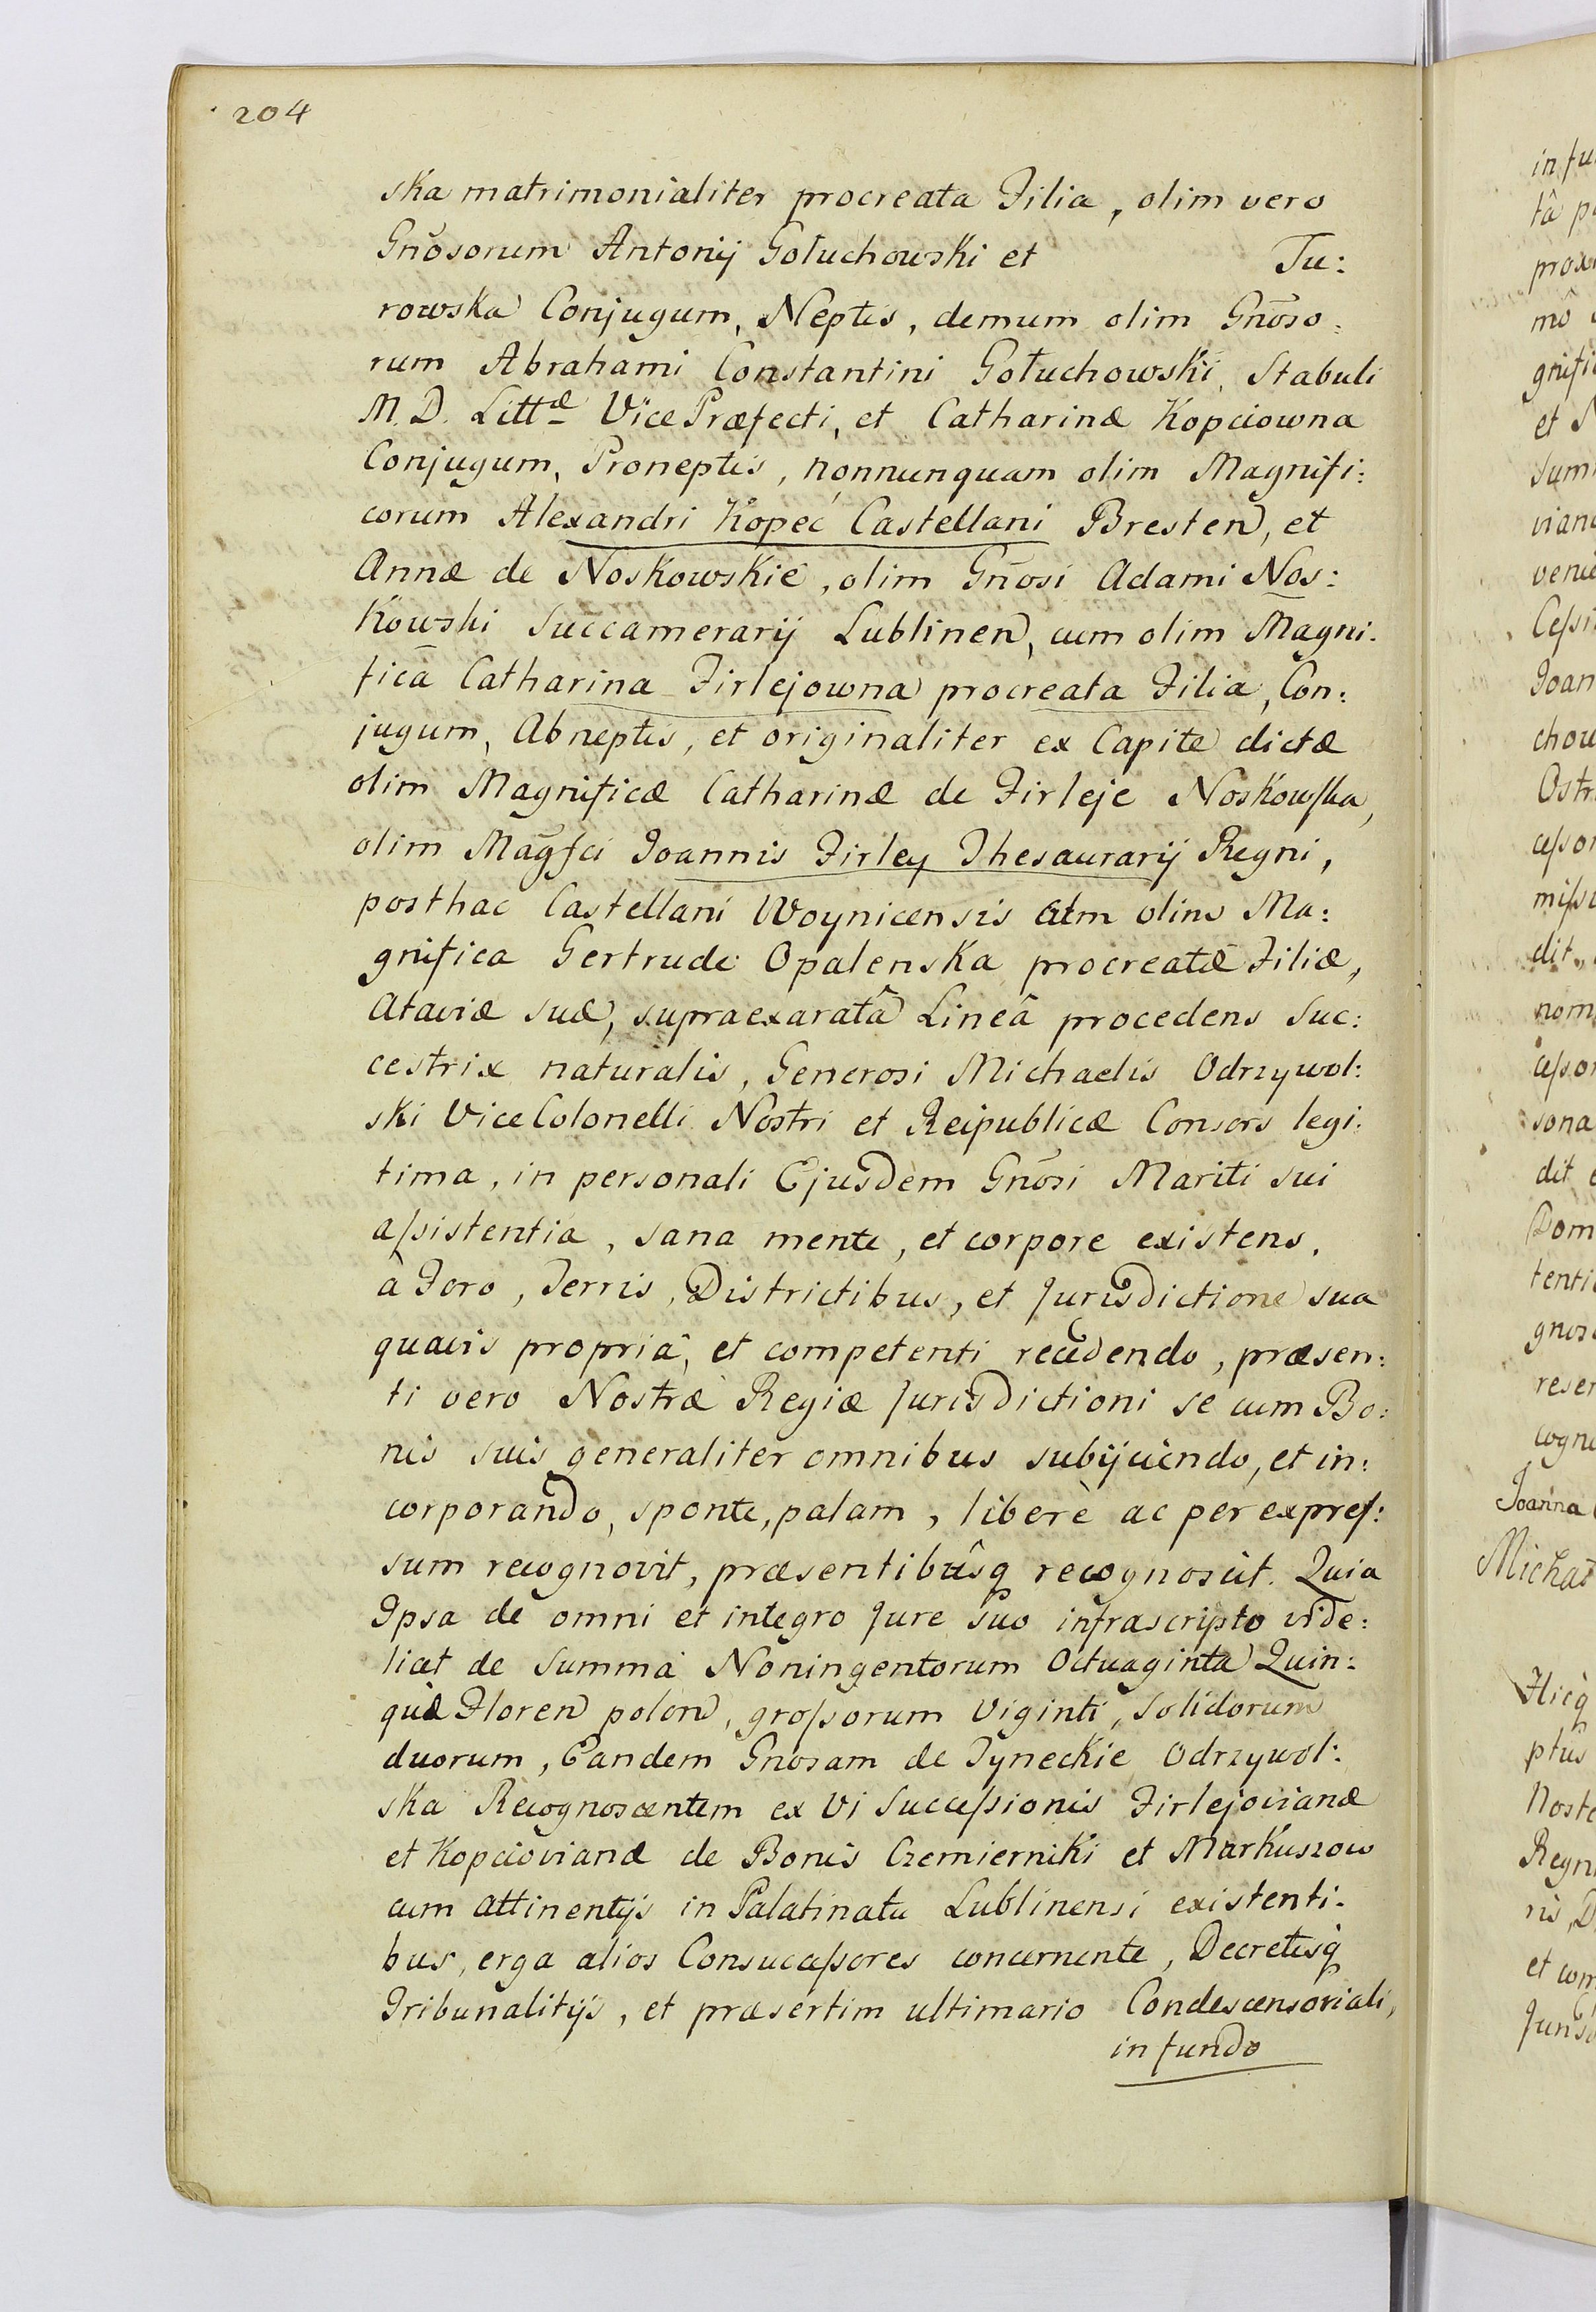 204
ska matrimonialiter procreata Filia, olim vero
Gnosorum Antonij Gołuchowski et Tu:
rowska Conjugum, Neptis, demum olim Gnoso:
rum Abrahami Constantini Gołuchowski, Stabuli
M. D. Littæ Vice Præfecti, et Catharinæ Kopciowna
Conjugum, Proneptis, nonnunquam olim Magnifi:
corum Alexandri Kopeć Castellani Bresten, et
Annæ de Noskowskie, olim Gnosi Adami Nos:
kowski Succamerarij Lublinen, cum olim Magni:
fica Catharina Firlejowna procreata Filia, Con:
jugum, Abneptis, et originaliter ex Capite dictæ
olim Magnificæ Catharinæ de Firleje Noskowſka,
olim Magfci Joannis Firley Thesaurarij Regni,
posthac Castellani Woynicensis cum olim Ma:
gnifica Gertrude Opalenska procreatæ Filiæ,
Ataviæ suæ, supraexaratâ Lineâ procedens Suc:
cestrix naturalis, Generosi Michaelis Odrzywol:
ski Vice Colonelli Nostri et Reipublicæ Consors legi:
tima, in personali Ejusdem Gnosi Mariti sui
aſsistentia, sana mente, et corpore existens,
à Foro, Terris, Districtibus, et Jurisdictione sua
quavis propriâ, et competenti recedendo, præsen:
ti vero Nostræ Regiæ Jurisdictioni se cum Bo:
nis suis generaliter omnibus subijciendo, et in:
corporando, sponte, palam, liberè ac per expreſ:
sum recognovit, præsentibusq recognoscit. Quia
Ipsa de omni et integro Jure suo infrascripto vide:
licet de Summa Noningentorum Octuaginta Quin:
que Floren polon, groſsorum Viginti, Solidorum
duorum, Eandem Gnosam de Tyneckie Odrzywol:
ska Recognoscentem ex Vi Succeſsionis Firlejovianæ
et Kopciovianæ de Bonis Czemierniki et Markuszow
cum attinentijs in Palatinatu Lublinensi existenti:
bus, erga alios Consucceſsores concernente, Decretisq
Tribunalitijs, et præsertim ultimario Condescensoriali,
in fundo